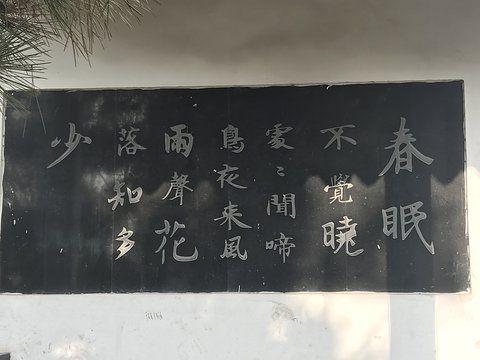 春眠
不覺曉
處〻聞啼
鳥夜来風
雨聲花
落知多
少